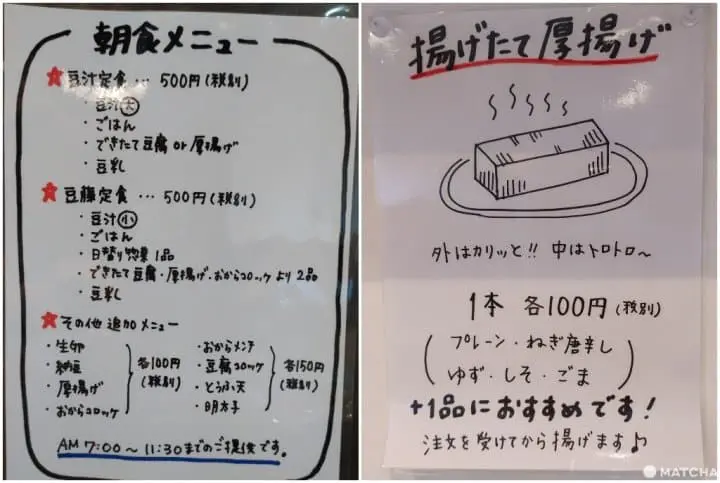 朝食メニュー
★豆汁定食 … 500円(税別)
・豆汁大
・ごはん
・できたて豆腐 or 厚揚げ
・豆乳
★豆藤定食 … 500円(税別)
・豆汁小
・ごはん
・日替り惣菜 1品
・できたて豆腐・厚揚げ・おからコロッケより2品
・豆乳
★その他 追加メニュー
・生卵
・納豆
・厚揚げ
・おからコロッケ
各100円(税別)
・おからメンチ
・豆腐コロッケ
・とうふ天
・明太子
各150円(税別)
AM 7:00～11:30までのご提供です。
揚げたて厚揚げ
外はカリッと!! 中はトロトロ～
1本 各100円(税別)
(プレーン・ねぎ唐辛し
ゆず・しそ・ごま)
+1品におすすめです!
注文を受けてから揚げます♪
MATCHA